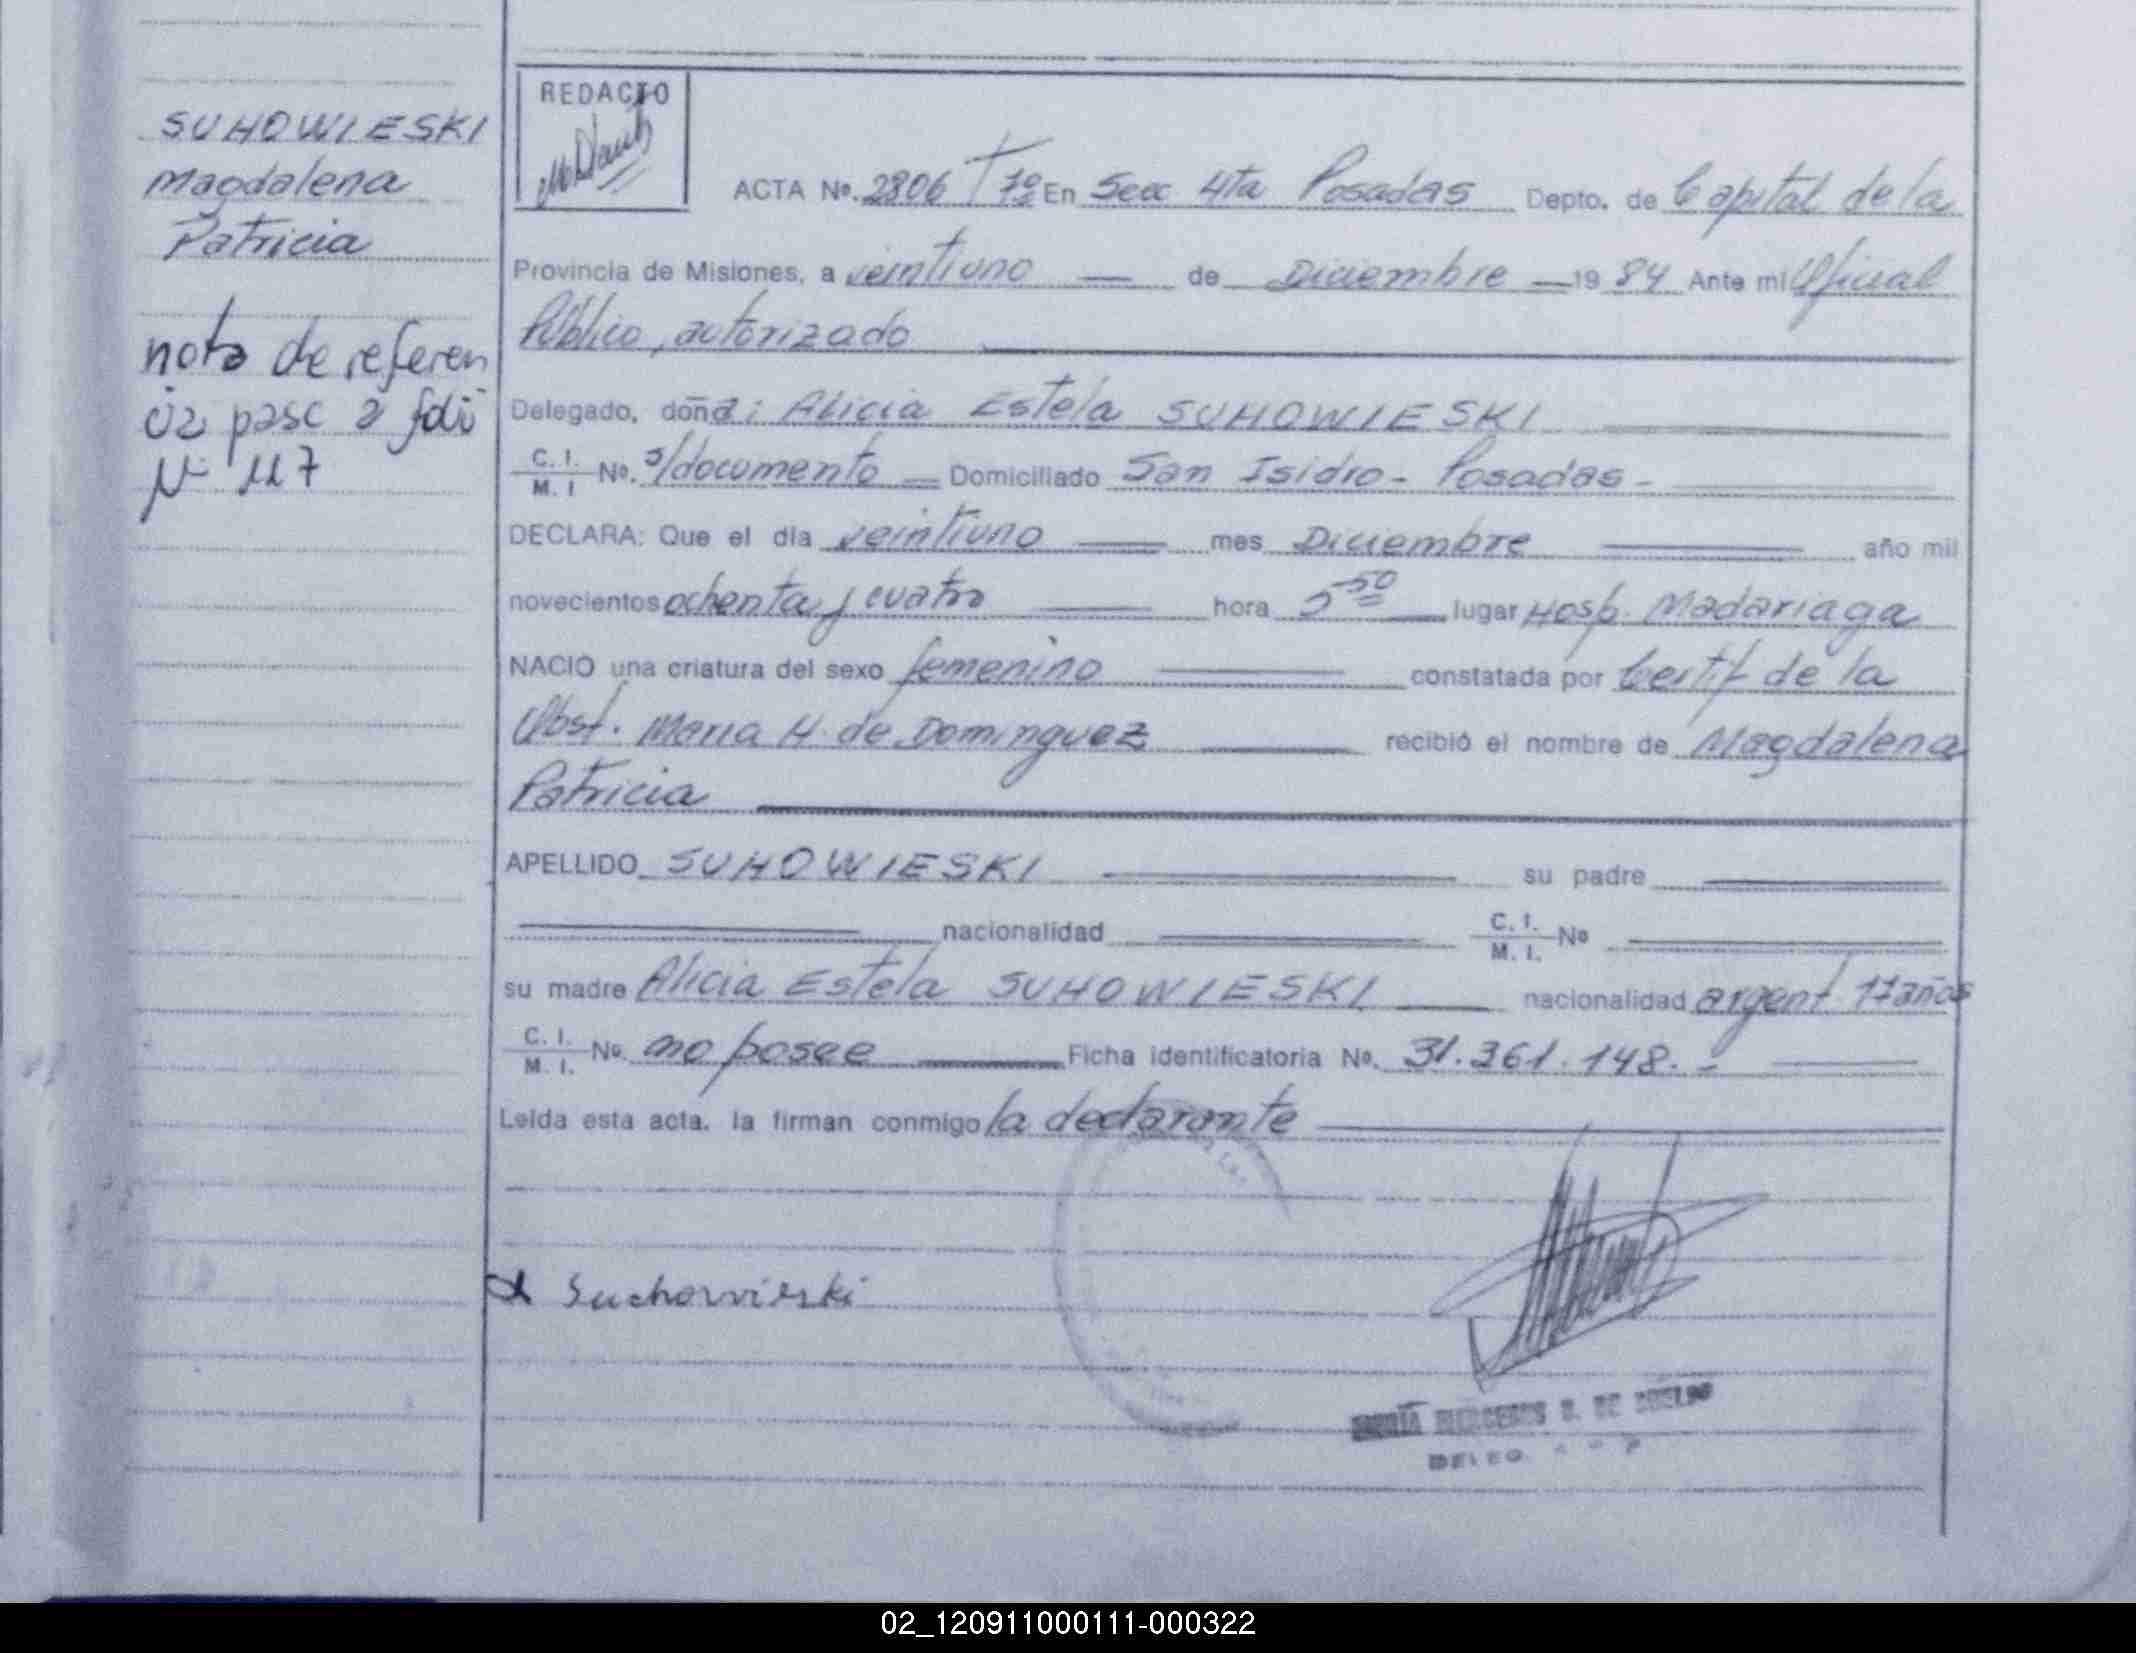 SUHOWIESKI
Magdalena
Patricia
nota de referen
cia pasc a folio
Nº 117
REDACTO
ACTA Nº. 2806 Tº 7º En Secc 4ta Posadas Depto. de Capital de la
Provincia de Misiones, a veintiuno de Diciembre 19 84 Ante mi Oficial
Público, autorizado
Delegado, doña: Alicia Estela SUHOWIESKI
C. I. / M. I Nº. s/documento Domiciliado San Isidro - Posadas -
DECLARA: Que el dia veintiuno mes Diciembre año mil
novecientos ochenta y cuatro hora 5 50 lugar Hosp. Madariaga
NACIO una criatura del sexo femenino constatada por Certif de la
Obst. Maria H de Dominguez recibió el nombre de Magdalena
Patricia
APELLIDO SUHOWIESKI su padre
nacionalidad C. I. / M. I. Nº
su madre Alicia Estela SUHOWIESKI nacionalidad argent. 17 años
C. I. / M. I. Nº. no posee Ficha identificatoria Nº. 31.361.148.-
Leida esta acta. la firman conmigo la declarante
Suchowieski
MARÍA MERCEDES B. DE COELHO
02_120911000111-000322